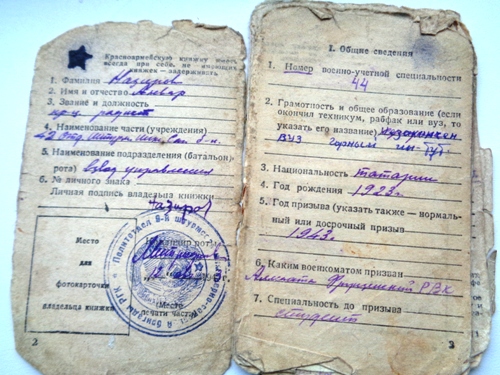 Красноармейскую книжку иметь
всегда при себе, не имеющих
книжек — задерживать.
1. Фамилия Назиров
2. Имя и отчество Анвар
3. Звание и должность
радист
4. Наименование части (учреждения)
5. Наименование подразделения (батальон,
рота) взвод управления
6. № личного знака
Личная подпись владельца книжки
Место
для
фотокарточки
владельца книжки
Командир роты
(Место
печати части)
Политотдел
бригады РГК
2
I. Общие сведения
1. Номер военно-учетной специальности
44
2. Грамотность и общее образование (если
окончил техникум, рабфак или вуз, то
указать его название)
ВУЗ горный
3. Национальность татарин
4. Год рождения 1923 г.
5. Год призыва (указать также — нормаль-
ный или досрочный призыв
1943 г.
6. Каким военкоматом призван
РВК
7. Специальность до призыва
студент
3